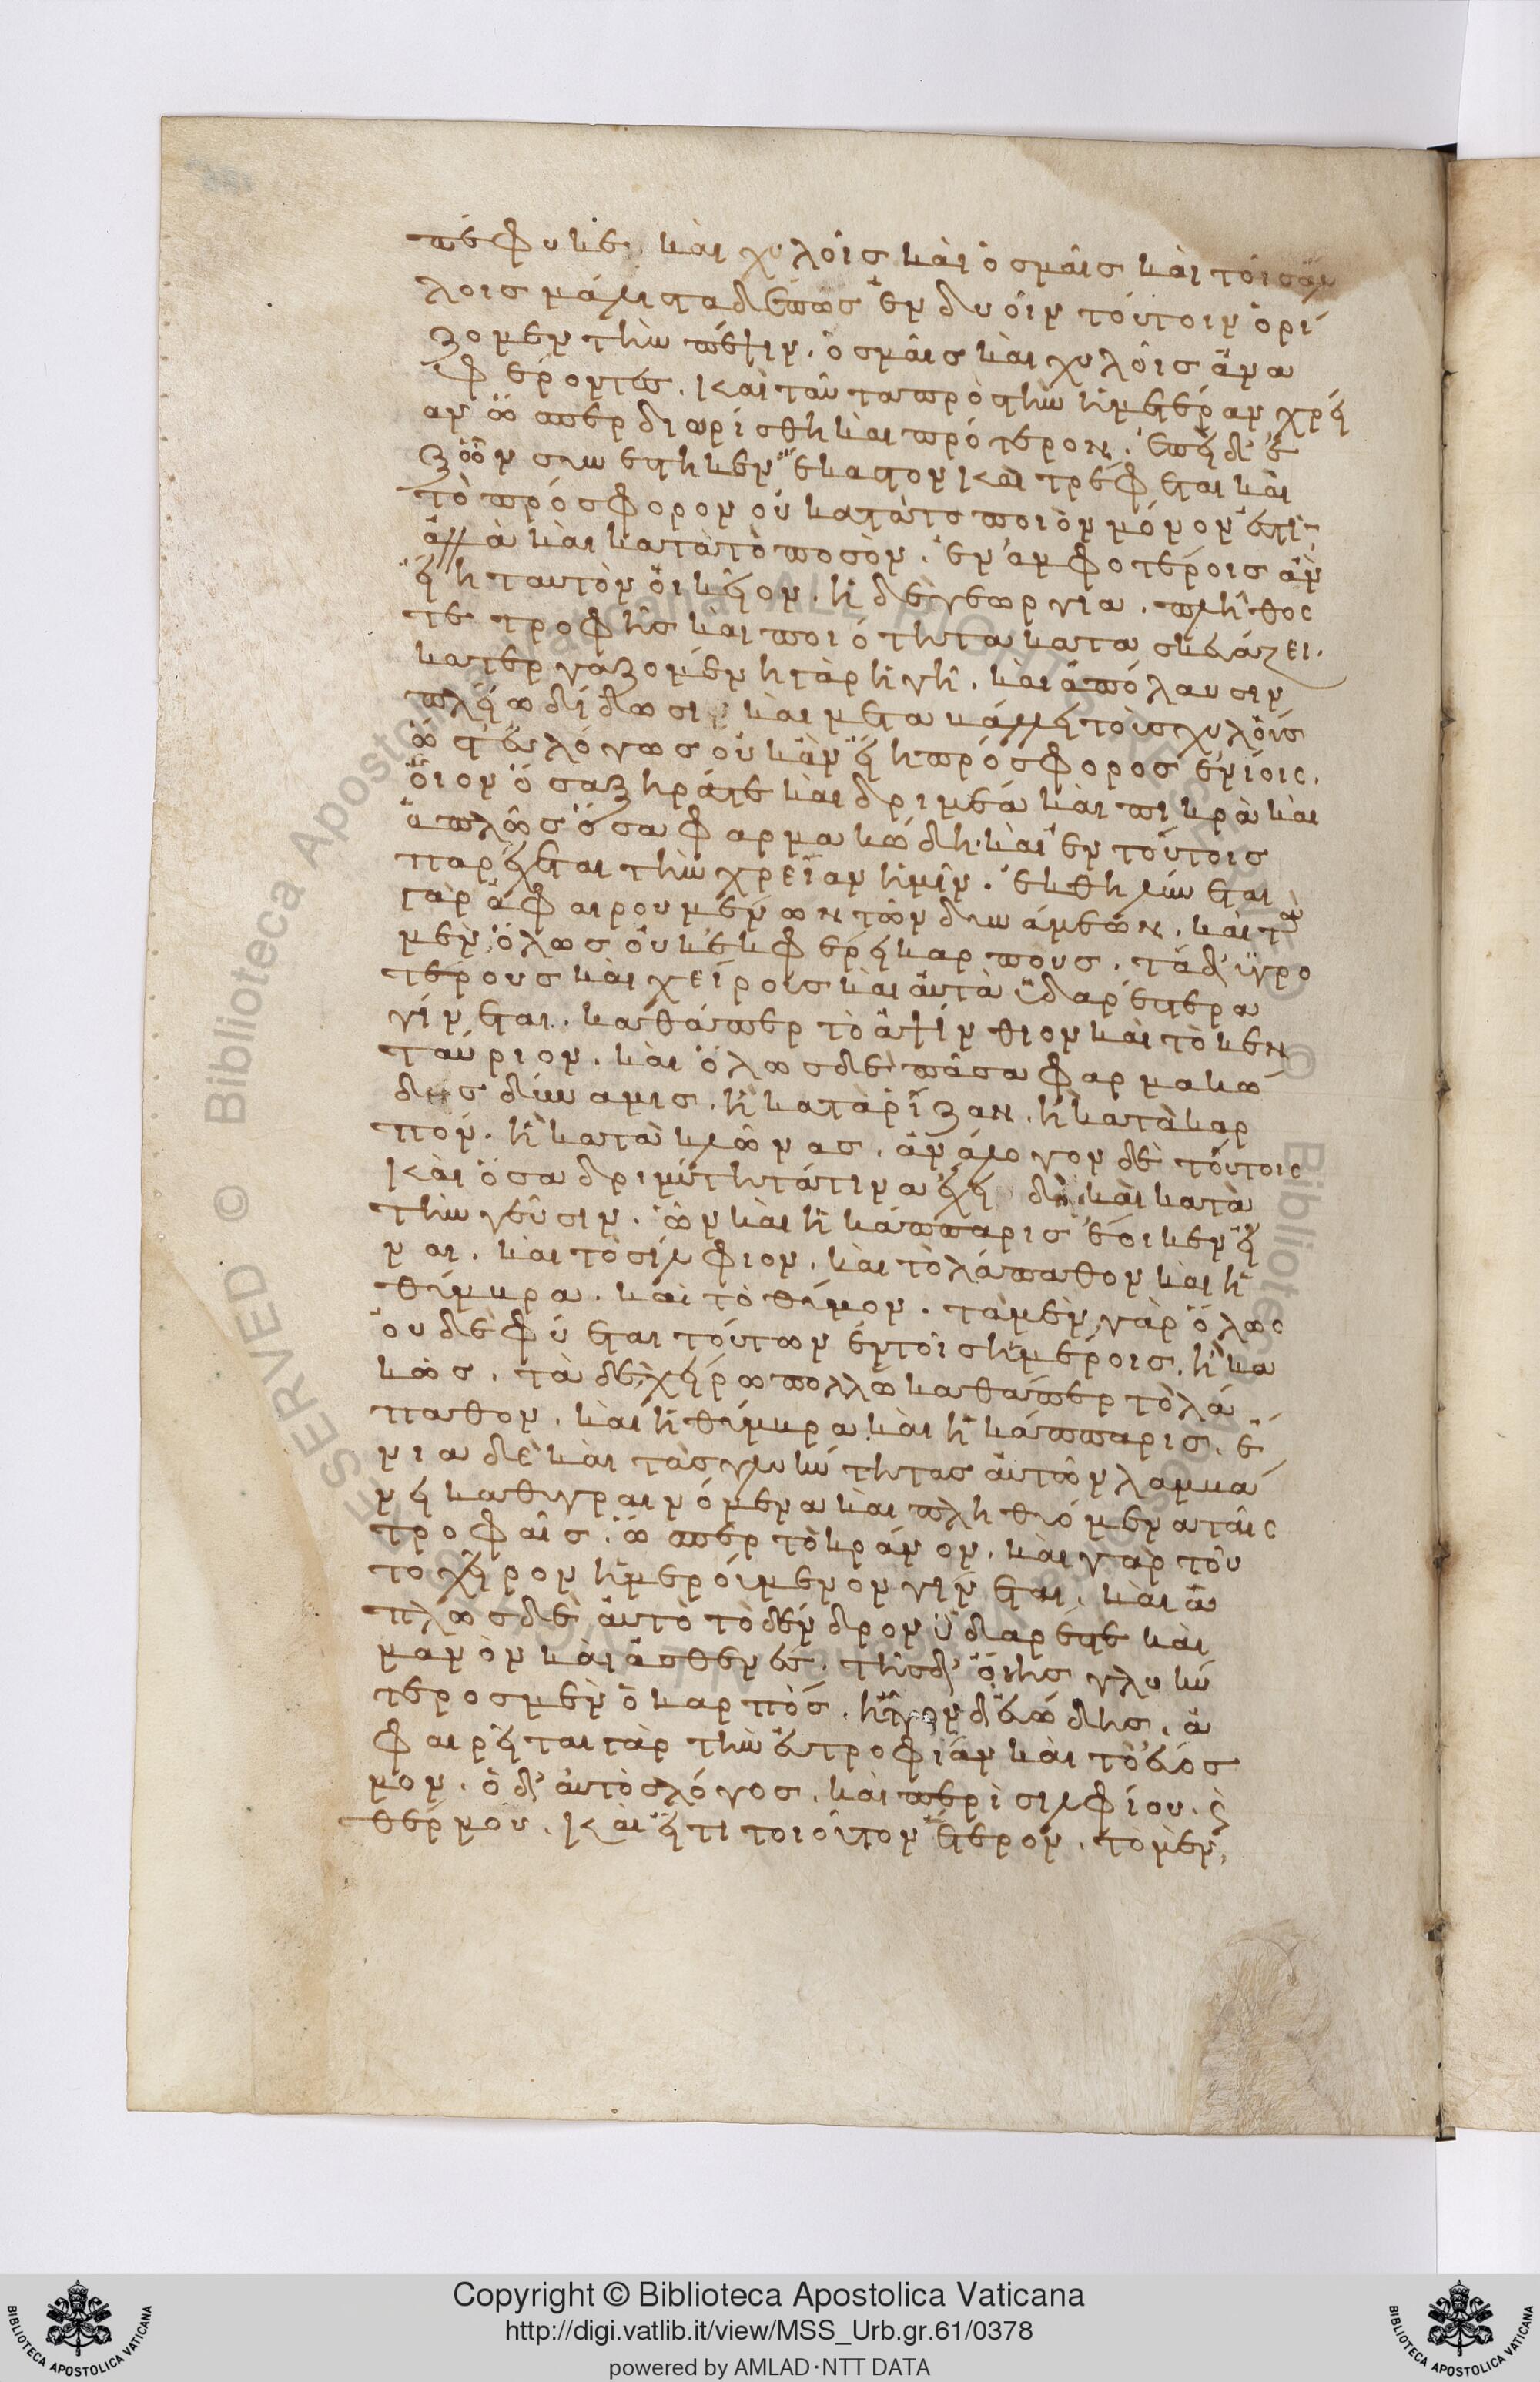 πέφυκε. καὶ χυλοῖς καὶ ὀσμαῖς καὶ τοῖς ἄλ
λοις μάλιστα δέ πως ἐν δυοῖν τούτοιν ὁρί
ζομεν τὴν πέψιν. ὀσμαῖς καὶ χυλοῖς ἅμα
φέροντες. καὶ ταῦτα πρὸς τὴν ἡμετέραν χρεί
αν ὥσπερ διωρίσθη καὶ πρότερον. ἐπεὶ δ' ἐ
ζῶον συνέστηκεν ἕκαστον καὶ τρέφεται καὶ
τὸ πρόσφορον οὐ κατὰ τὸ ποιὸν μόνον ἐστὶ
ἀλλὰ καὶ κατὰ τὸ ποσὸν. ἐν ἀμφοτέροις ἂν
εἴη ταυτὸν οἰκεῖον. ἡ δὲ γεωργία. πλῆθος
τε τροφῆς καὶ ποιότητα κατασκευάζει.
κατεργαζομένη γὰρ ἡ γῆ. καὶ ἀπόλαυσιν
πλείω δίδωσι. καὶ μεταβάλλει τοὺς χυλοὺς
ὥστ' εὐλόγως οὐκ ἂν εἴη πρόσφορος ἐνίοις.
οἷον ὅσα ξηρά τε καὶ δριμέα καὶ πικρὰ καὶ
ἁπλῶς ὅσα φαρμακώδη. καὶ ἐν τούτοις
παρέχεται τὴν χρείαν ἡμῖν. ἐκθηλύνεται
γὰρ ἀφαιρουμένων τῶν δυνάμεων. καὶ τὰ
μὲν ὅλως οὐκ ἐκφέρει καρποὺς. τὰ δ' ὑγρο
τέρους καὶ χείρους καὶ αὐτὰ ὑδαρέστερα
γίνεται. καθάπερ τὸ ἀψίνθιον καὶ τὸ κεν
ταύριον. καὶ ὅλως δὲ πᾶσα φαρμακώ
δης δύναμις. ἢ κατὰ ῥίζαν. ἢ κατὰ καρ
πὸν. ἢ κατὰ κλῶνας. ἀνάλογον δὲ τούτοις
καὶ ὅσα δριμύτητά τινα ἔχει δὴ καὶ κατὰ
τὴν γεῦσιν. ὧν καὶ ἡ κάππαρις ἔοικεν εἶ
ναι. καὶ τὸ σίλφιον. καὶ τὸ λάπαθον καὶ ἡ
θύμβρα. καὶ τὸ θύμον. τὰ μὲν γὰρ ὅλως
οὐδὲ φύεται τούτων ἐν τοῖς ἡμέροις. ἢ κα
κῶς. τὰ δὲ χείρω πολλῶ καθάπερ τὸ λά
παθον. καὶ ἡ θύμβρα καὶ ἡ κάππαρις. ἔ
νια δὲ καὶ τὰς γλυκύτητας αὐτῶν λαμβά
νει καθυγραινόμενα καὶ πληθυόμενα ταῖς
τροφαῖς. ὥσπερ τὸ κράνον. καὶ γὰρ τοῦ
το χεῖρον ἡμερούμενον γίνεται. καὶ ἁ
πλῶς δὲ αὐτὸ τὸ δένδρον ὑδαρές τε καὶ
μανὸν καὶ ἀσθενές. τῆς δ' ὄης γλυκύ
τερος μὲν ὁ καρπός. ἧττον δ' εὐώδης. ἀ
φαιρεῖται γὰρ τὴν εὐτροφίαν καὶ τὸ εὔοσ
μον. ὁ δ' αὐτὸς λόγος. καὶ περὶ σιλφίου. καὶ
θέρμου. καὶ εἴ τι τοιοῦτον ἕτερον. τὸ μὲν
Copyright © Biblioteca Apostolica Vaticana
http://digi.vatlib.it/view/MSS_Urb.gr.61/0378
powered by AMLAD·NTT DATA